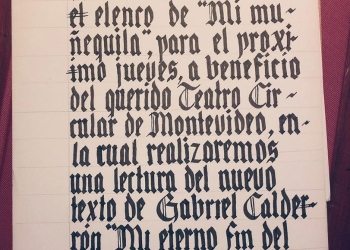 el elenco de "Mi mu-
ñequila", para el proxi-
imo jueves, a beneficio
del querido Teatro Cir-
cular de Montevideo, en-
la cual realizaremos
una lectura del nuevo
texto de Gabriel Calder-
rón "Mi eterno fin del